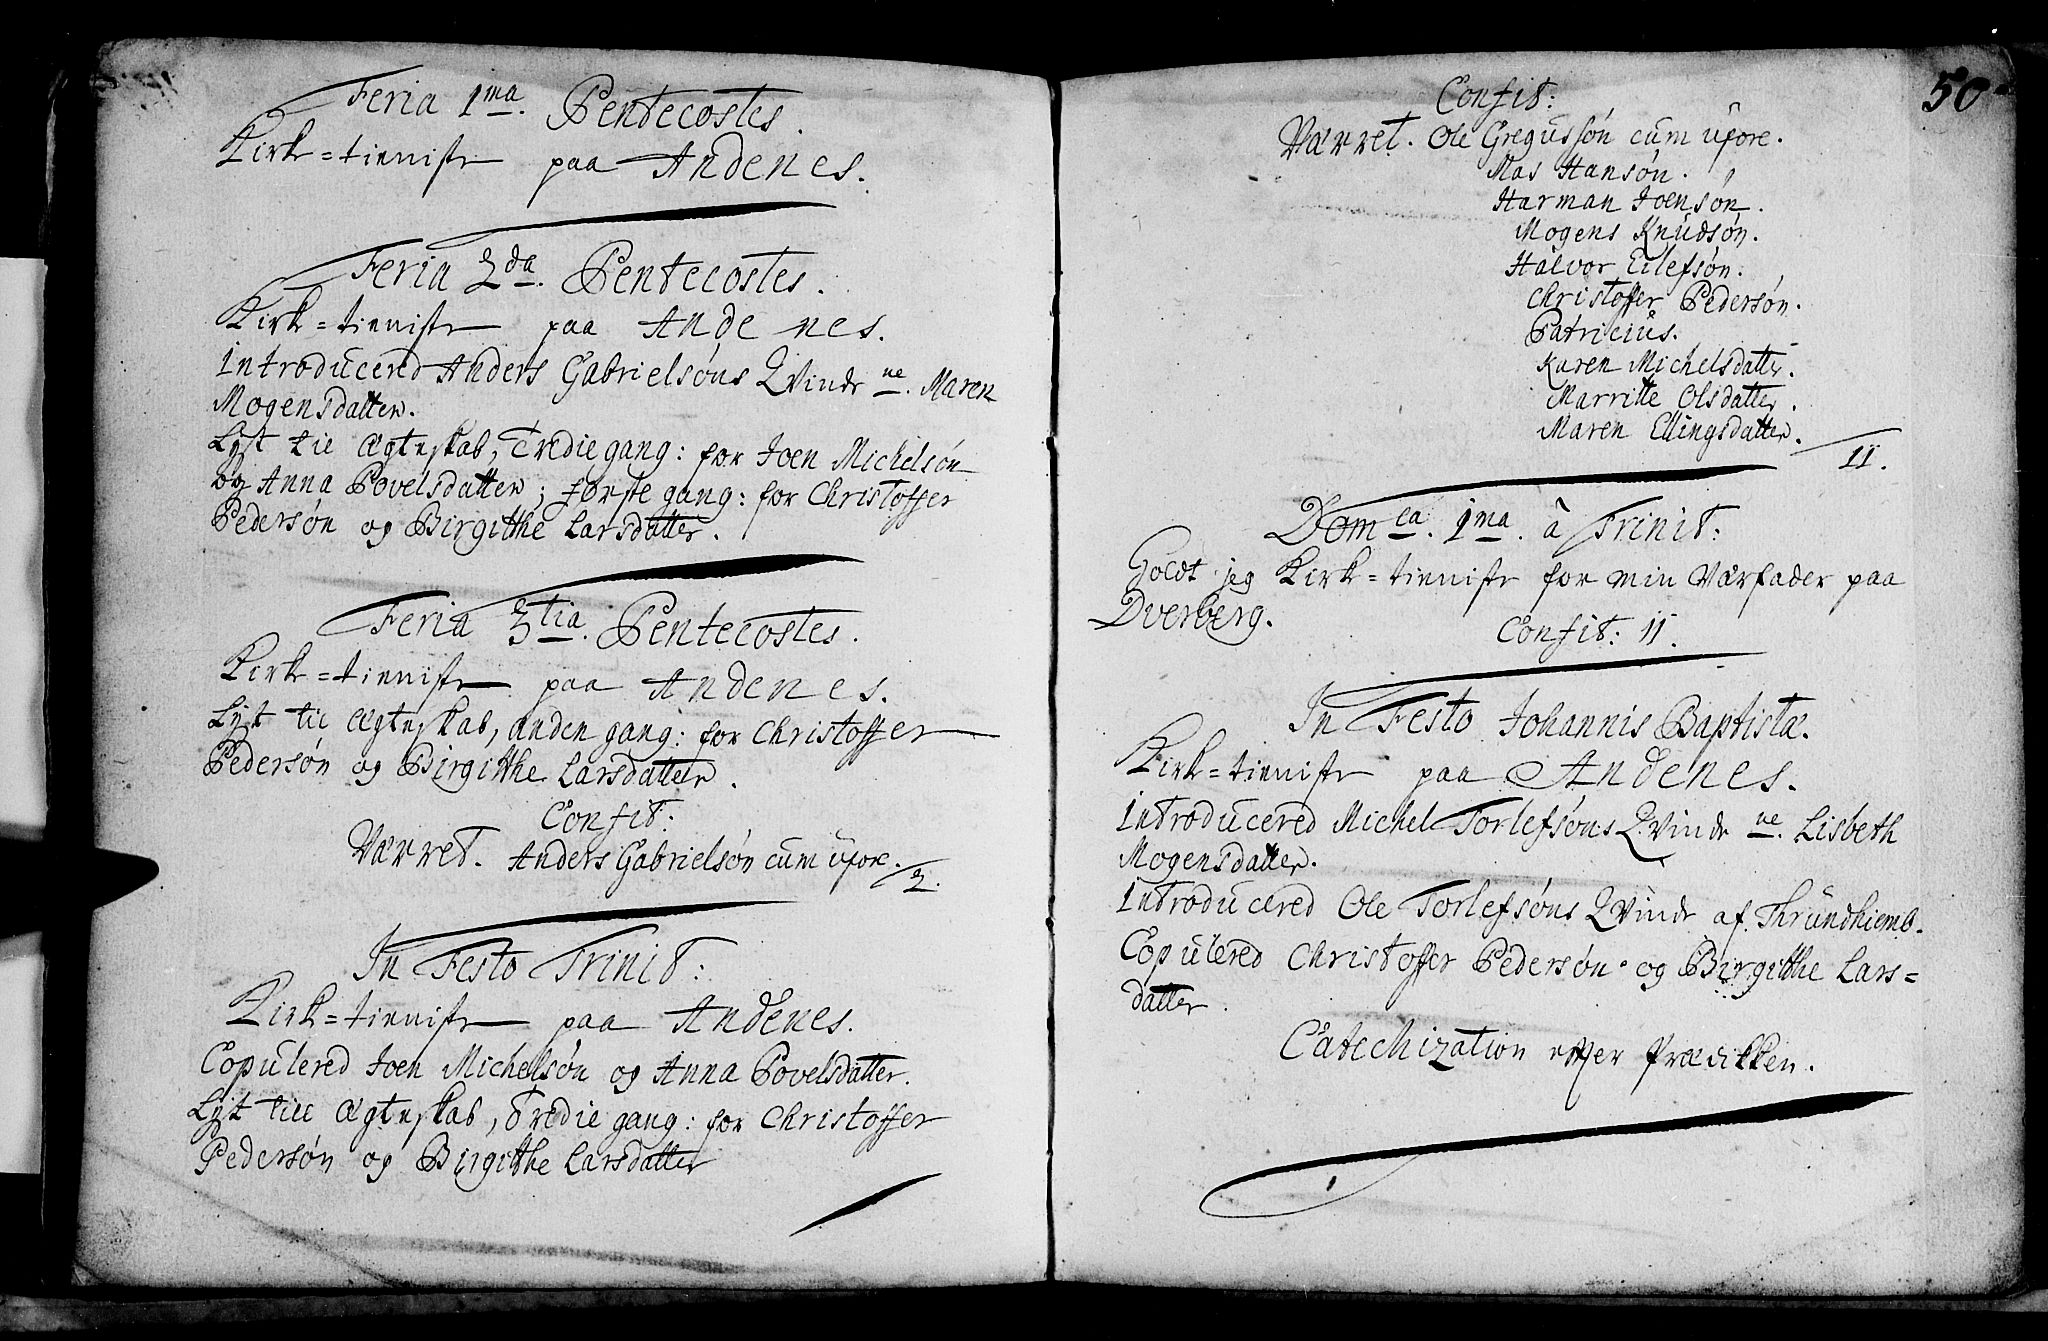 Feria 1ma. Pentecostes.
Kirke=tieniste paa Andenes.
Feria 2da. Pentecostes.
Kirke=tieniste paa Andenes.
Introducered Anders Gabrielsøns Qvinde ne. Maren
Mogensdatter.
Lyst til Ægteskab, Tredie gang: for Joen Michelsøn
og Anna Povelsdatter; første gang: for Christoffer
Pedersøn og Birgitthe Larsdatter.
Feria 3tia. Pentecostes.
Kirke=tieniste paa Andenes.
Lyst til Ægteskab, anden gang: for Christoffer
Pedersøn og Birgitthe Larsdatter.
Confit:
Værret. Anders Gabrielsøn cum uxore.
2.
In Festo Trinit:
Kirke=tieniste paa Andenes.
Copulered Joen Michelsøn og Anna Povelsdatter.
Lyst till Ægteskab, Tredie gang: for Christoffer
Pedersøn og Birgitthe Larsdatter
50
Confit:
Værret. Ole Gregussøn cum uxore.
Mas Hansøn.
Harman Joensøn.
Mogens Knudsøn.
Halvor Eilefsøn.
Christoffer Pedersøn.
Patricius.
Karen Michelsdatter.
Marritte Olsdatter.
Maren Ellingsdatter.
11.
Domca. 1ma. à Trinit:
Holdt jeg Kirke=tieniste for min Værfader paa
Dverberg.
Confit: 11.
In Festo Johannis Baptistæ.
Kirke=tieniste paa Andenes.
Introducered Michel Torlefsøns Qvinde ne. Lisbeth
Mogensdatter.
Introducered Ole Torlefsøns Qvinde af Thrundhiemb.
Copulered Christoffer Pedersøn og Birgitthe Lars=
datter.
Catechization efter Prædikken.